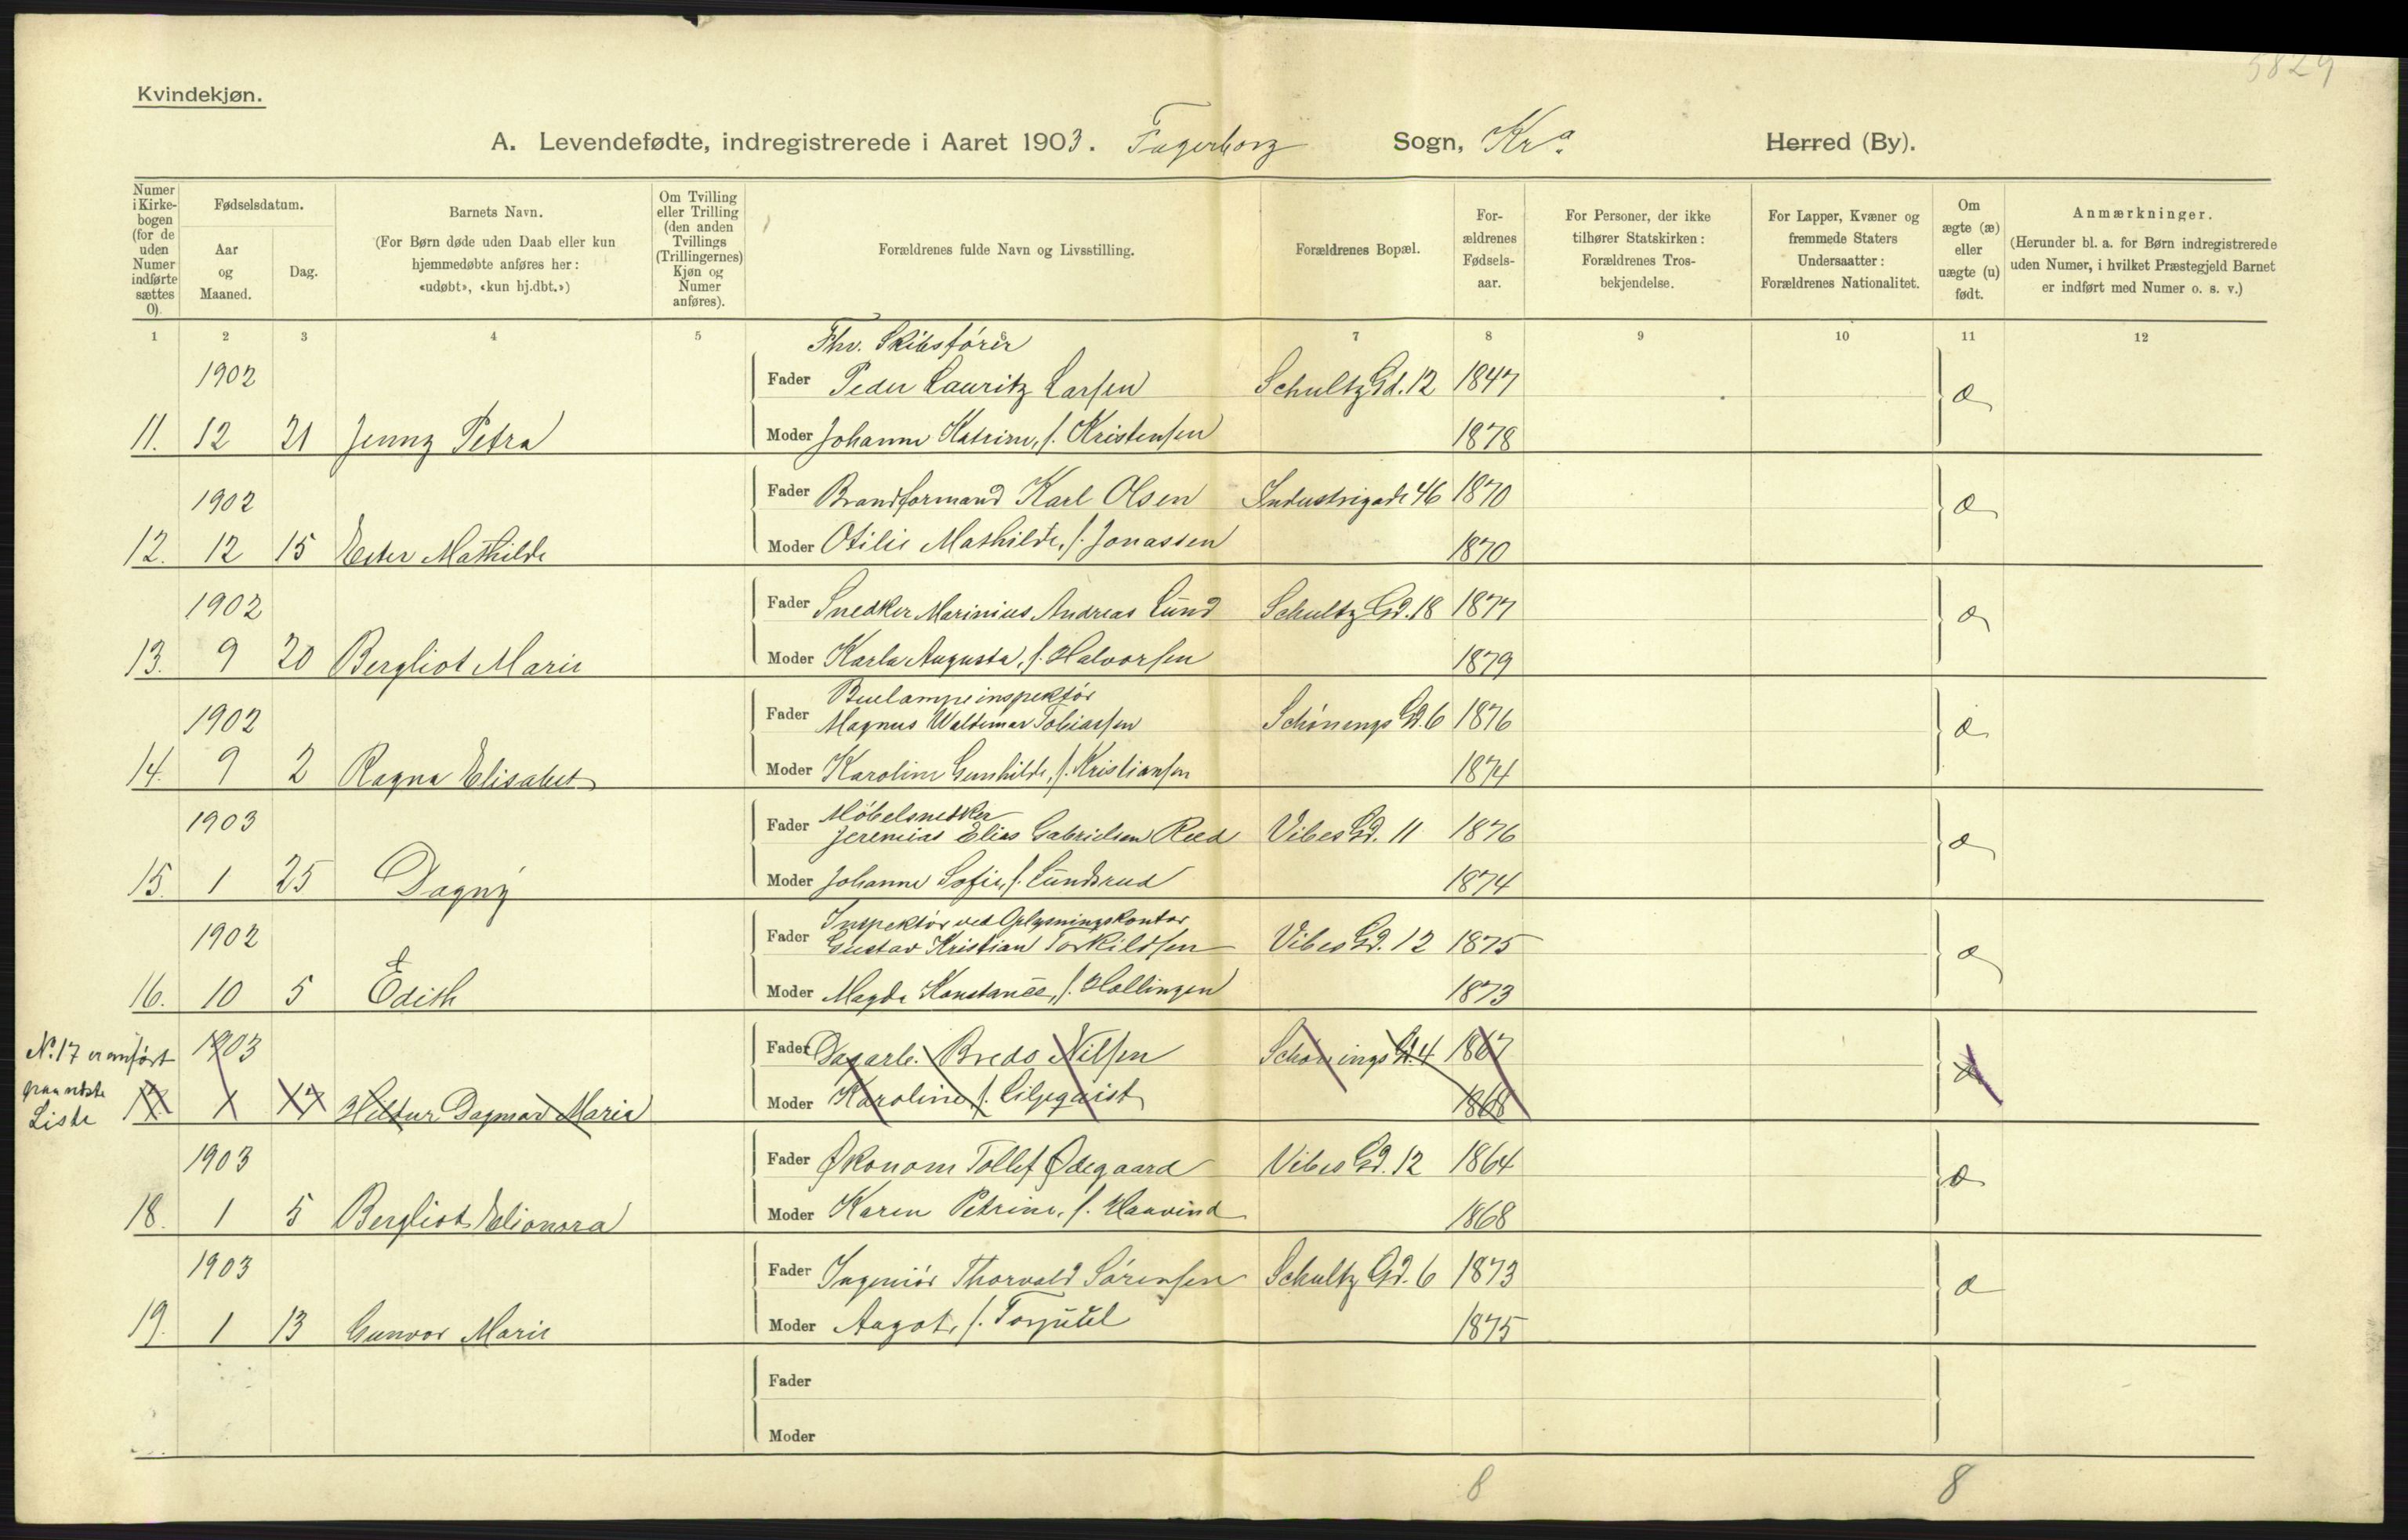 5829
Kvindekjøn.
A. Levendefødte, indregistrerede i Aaret 1903. Fagerborg Sogn, Kra. Herred (By).
Numer i Kirkebogen (for de uden Numer indførte sættes 0).
Fødselsdatum.
Aar og Maaned.
Dag.
Barnets Navn.
(For Børn døde uden Daab eller kun hjemmedøbte anføres her: «udøbt», «kun hj.dbt.»)
Om Tvilling eller Trilling (den anden Tvillings (Trillingernes) Kjøn og Numer anføres).
Forældrenes fulde Navn og Livsstilling.
Forældrenes Bopæl.
Forældrenes Fødselsaar.
For Personer, der ikke tilhører Statskirken: Forældrenes Trosbekjendelse.
For Lapper, Kvæner og fremmede Staters Undersaatter: Forældrenes Nationalitet.
Om ægte (æ) eller uægte (u) født.
Anmærkninger.
(Herunder bl. a. for Børn indregistrerede uden Numer, i hvilket Præstegjeld Barnet er indført med Numer o. s. v.)
1 2 3 4 5 7 8 9 10 11 12
Fhv. Skibsfører
1902 Fader Peder Lauritz Larsen Schultz Gd. 12 1847 æ
11. 12 21 Jenny Petra Moder Johanne Katrine, f. Kristensen 1878
1902 Fader Brandformand Karl Olsen Industrigade 46 1870 æ
12. 12 15 Ester Mathilde Moder Otilie Mathilde, f. Jonassen 1870
1902 Fader Snedker Marinius Andreas Lund Schultz Gd. 18 1877 æ
13. 9 20 Bergliot Marie Moder Karla Augusta, f. Halvorsen 1879
Buelampeinspektør
1902 Fader Magnus Waldemar Tobiassen Schønings Gd. 6 1876 æ
14. 9 2 Ragna Elisabet Moder Karoline Gunhilde, f. Kristiansen 1874
Møbelsnedker
1903 Fader Jeremias Elias Gabrielsen Reed Vibes Gd. 11 1876 æ
15. 1 25 Dagny Moder Johanne Sofie, f. Lundsrud 1874
Inspektør ved Oplysningskontor
1902 Fader Gustav Kristian Torkildsen Vibes Gd. 12 1875 æ
16. 10 5 Edith Moder Magda Konstance, f. Hollingen 1873
No. 17 er anført paa næste Liste
1903 Fader Dagarb. Bredo Nilsen Schønings Gd. 4 1867 æ
17 1 17 Hildur Dagmar Marie Moder Karoline, f. Liljeqvist 1868
1903 Fader Økonom Tollef Ødegaard Vibes Gd. 12 1864 æ
18. 1 5 Bergliot Elionora Moder Karen Petrine, f. Haavind 1868
1903 Fader Ingeniør Thorvald Sørensen Schultz Gd. 6 1873 æ
19. 1 13 Gunvor Marie Moder Aagot, f. 1875
Fader
Moder
8 8